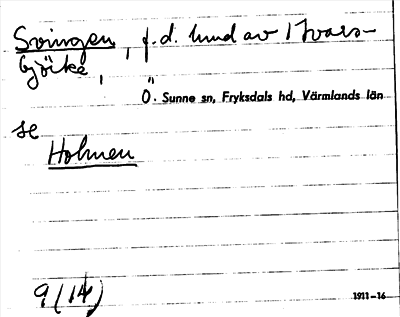 Svingen, f.d. lund av 1 Ivars-
björke,
Ö. Sunne sn, Fryksdals hd, Värmlands län
se
Holmen
9(14)
1911–16